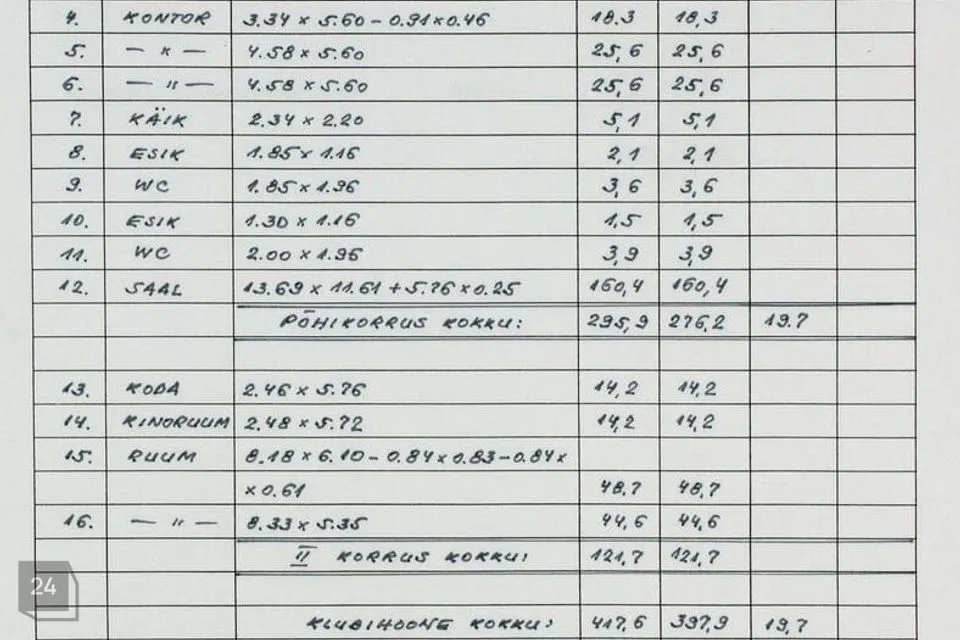 4. KONTOR 3.34 x 5.60 - 0.91 x 0.46 18.3 18,3
5. — " — 4.58 x 5.60 25,6 25,6
6. — " — 4.58 x 5.60 25,6 25,6
7. KÄIK 2.34 x 2.20 5,1 5,1
8. ESIK 1.85 x 1.16 2,1 2,1
9. WC 1.85 x 1.96 3,6 3,6
10. ESIK 1.30 x 1.16 1,5 1,5
11. WC 2.00 x 1.96 3,9 3,9
12. SAAL 13.69 x 11.61 + 5.76 x 0.25 160,4 160,4
PÕHIKORRUS KOKKU: 295,9 276,2 19.7
13. KODA 2.46 x 5.76 14,2 14,2
14. KINORUUM 2.48 x 5.72 14,2 14,2
15. RUUM 8.18 x 6.10 - 0.84 x 0.83 - 0.84 x
x 0.61 48,7 48,7
16. — " — 8.33 x 5.35 44,6 44,6
II KORRUS KOKKU: 121,7 121,7
24
KLUBIHOONE KOKKU: 417,6 397,9 19,7